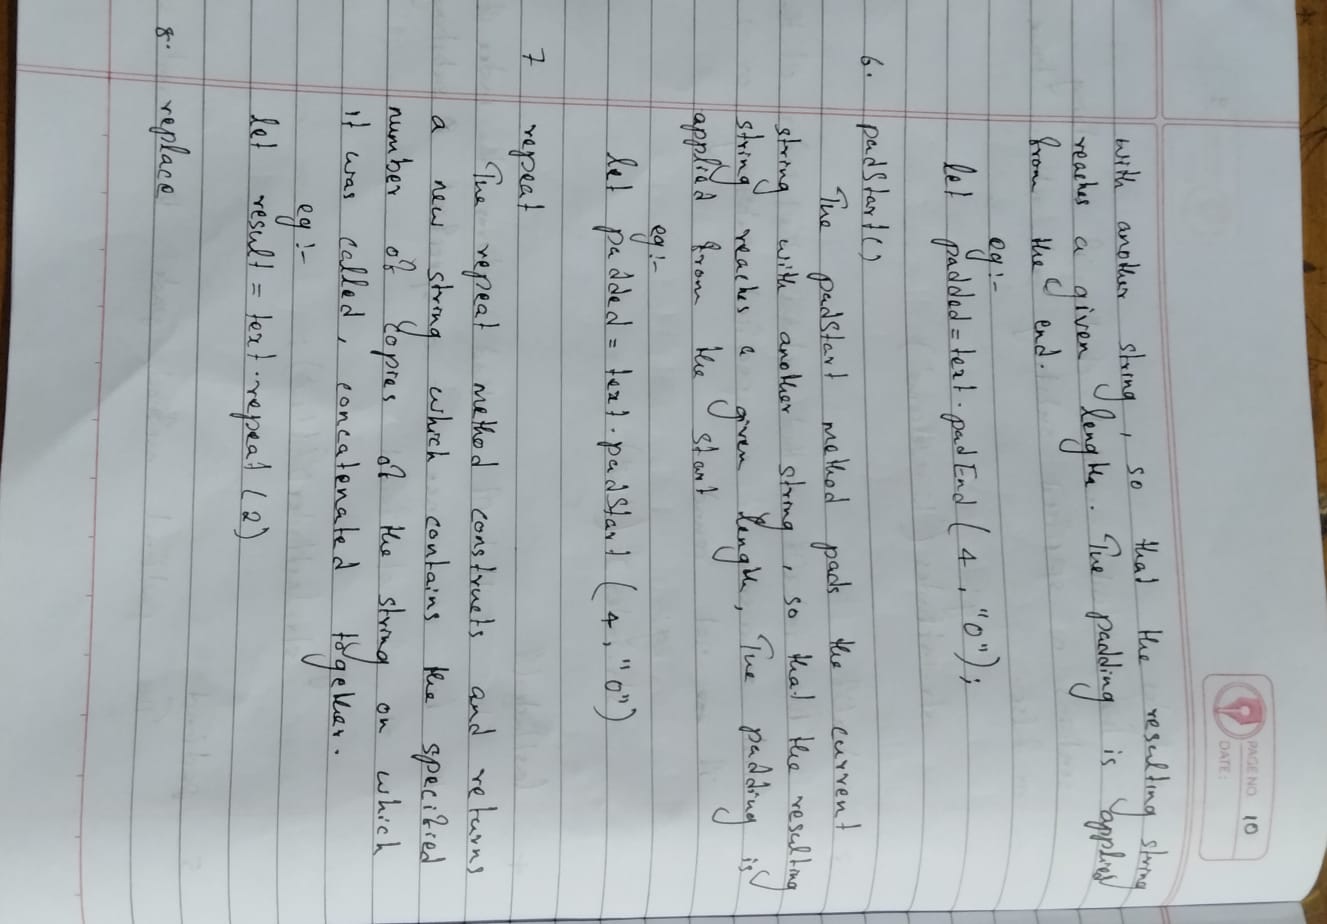 PAGE NO. 10
DATE:
with another string, so that the resulting string
reaches a given length. The padding is applied
from the end.
eg:-
let padded = text.padEnd (4, "0");
6. padStart()
The padStart method pads the current
string with another string, so that the resulting
string reaches a given length, The padding is
applied from the start
eg:-
let padded = text.padStart (4, "0")
7 repeat
The repeat method constructs and returns
a new string which contains the specified
number of copies of the string on which
it was called, concatenated together.
eg:-
let result = text.repeat (2)
8. replace